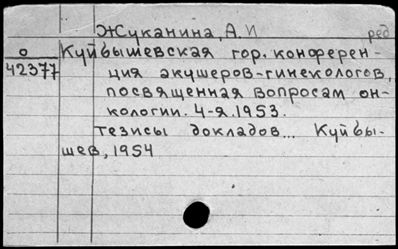 Жуканина, А.И
ред
О
42377
Куйвышевская гор. конферен-
ция акушеров-гинекологов,
посвященная вопросам он-
кологии. 4-я. 1953.
Тезисы докладов... Куйвы-
шев, 1954